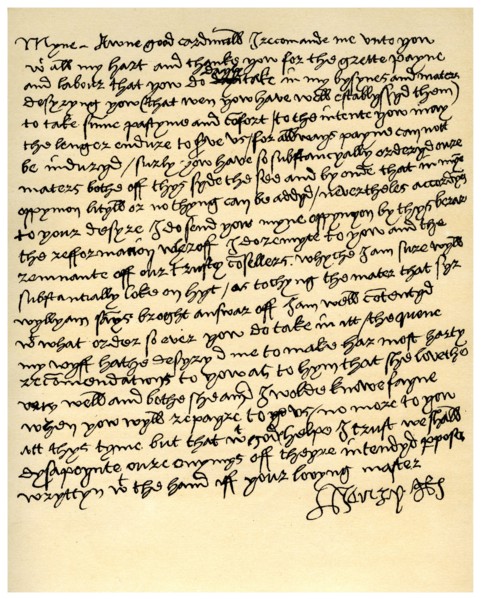 Myne awne good cardinall I recomande me unto yow
wt all my hart and thanke yow for the grette payne
and labour that yow do dayly take in my bysynes and maters
desyryng yow (that wen yow have well establyssyd them)
to take summe pastyme and cofort to the intente yow may
the lenger endure to serve us / for allways payne can nott
be induryd / surly yow have so substancyally orderyd oure
maters bothe off thys syde the see and by onde that in myne
oppynion lityll or no thyng can be addyd / nevertheles accordyng
to your desyre I do send yow myne oppynyon by thys berar
the refformation wheroff I do remytte to yow and the
remnante off our trusty cosellers whyche I am sure wyll
substantially loke on hyt / as tochyng the mater that syr
wyllyam says broght answar off I am well cotentyd
wt what order so ever yow do take in itt / the quene
my wyff hathe desyryd me to make har most harty
recomendations to yow as to hym that she lovethe
very well and bothe she and I wolde knowe fayne
when yow wyll repayre to us / no more to yow
att thys tyme but that wt gods helpe I trust we shall
dysapoynte oure enymys off theyre intendyd purpose
wryttyn wt the hand off your lovyng master
Henry